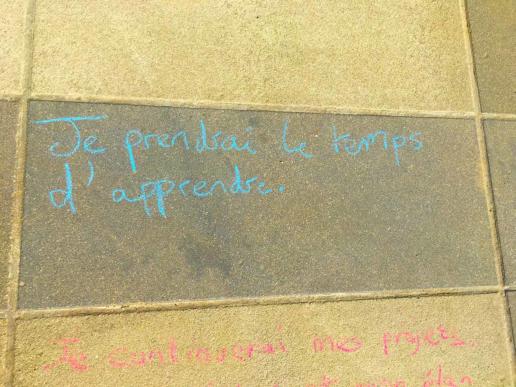 Je prendrai le temps
d'apprendre.
Je continuerai mes projets.
mon élan